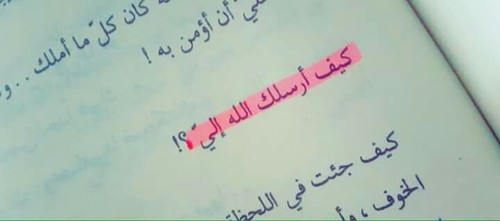 كان كلّ ما أملك . . و
أن أؤمن به !
كيف أرسلك الله إليّ ؟!
كيف جئت في اللحظة
الخوف ، وأ